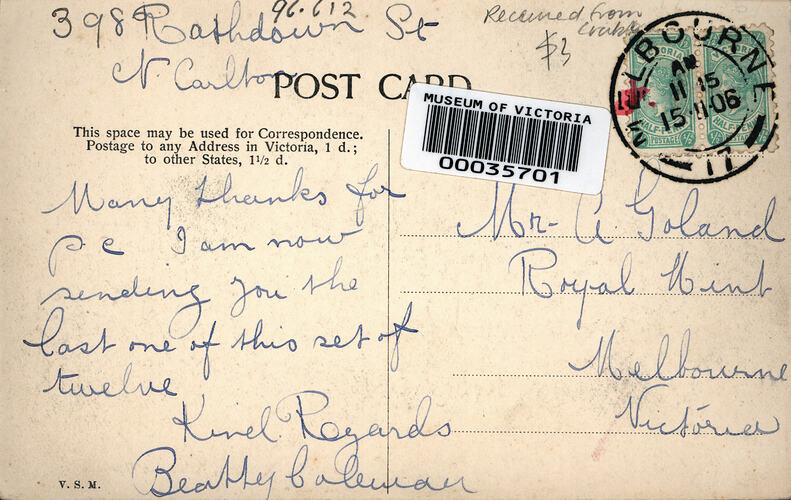 398 Rathdown St
96.612
Received from
$3
N. Carlton
POST CARD
MELBOURNE
AM
11 15
15-11-06
17
VICTORIA
HALF-PENNY
POSTAGE
MUSEUM OF VICTORIA
00035701
This space may be used for Correspondence.
Postage to any Address in Victoria, 1 d.;
to other States, 1½ d.
Many thanks for
p c I am now
sending you the
last one of this set of
twelve
Kind Regards
Beatty Coleman
Mr- A Goland
Royal Mint
Melbourne
Victoria
V. S. M.